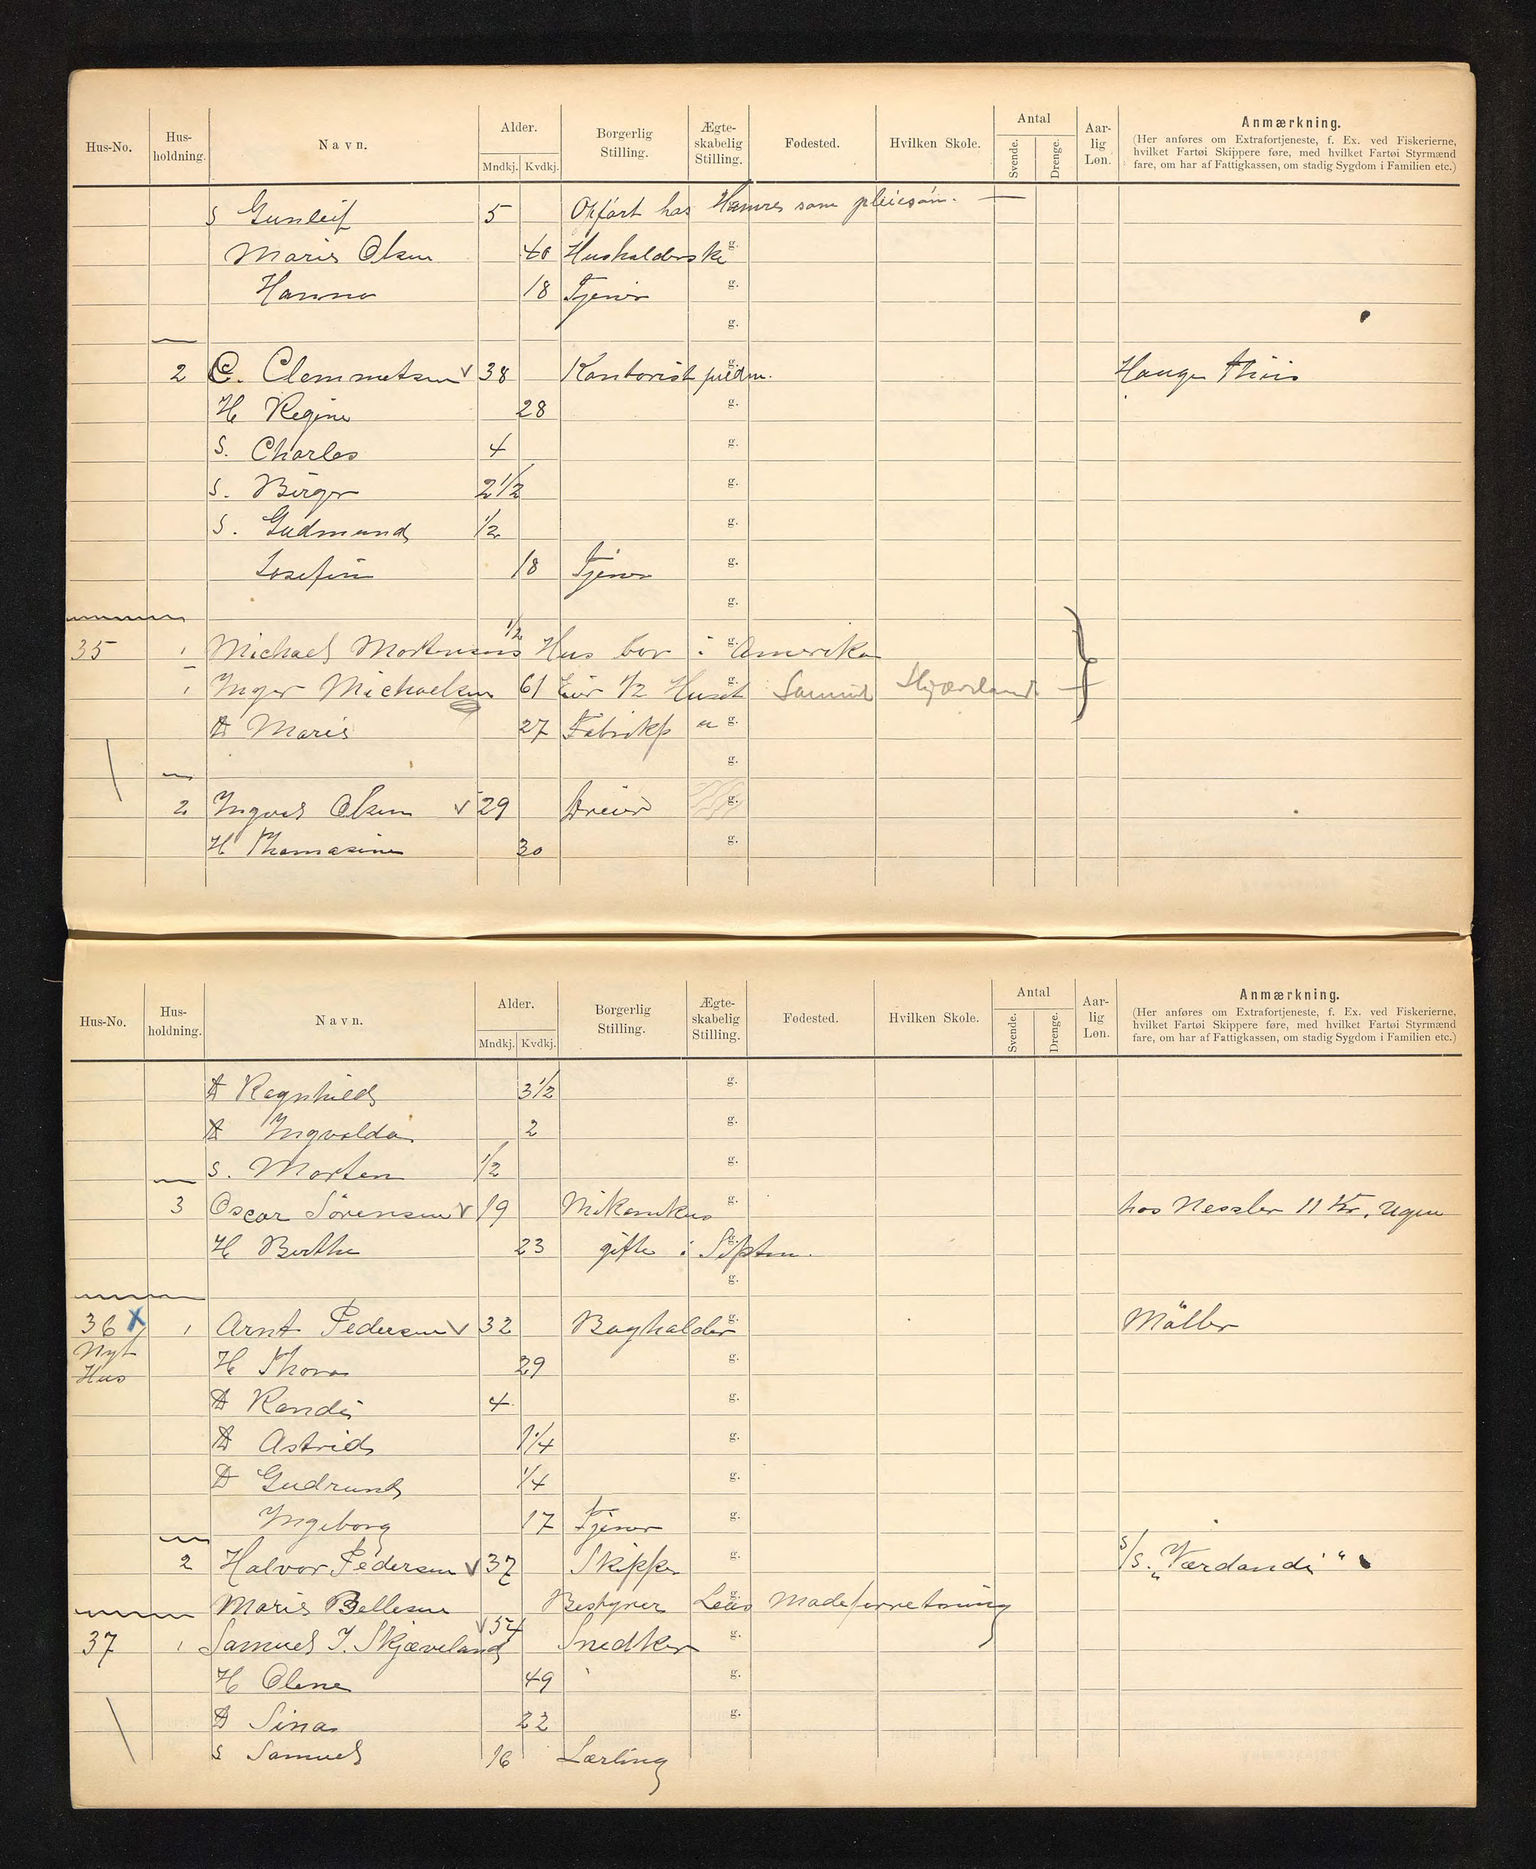 Hus-No. Hus-holdning. Navn. Alder. Mndkj. Kvdkj. Borgerlig Stilling. Ægte-skabelig Stilling. Fødested. Hvilken Skole. Antal Svende. Drenge. Aar-lig Løn. Anmærkning.
(Her anføres om Extrafortjeneste, f. Ex. ved Fiskerierne,
hvilket Fartøi Skippere føre, med hvilket Fartøi Styrmænd
fare, om har af Fattigkassen, om stadig Sygdom i Familien etc.)
S Gunleif 5 Opført hos Hamres som pleiesøn. —
Marie Olsen 40 Husholderske g.
Hanna 18 Tjener g.
g.
2 C. Clemmetsen v 38 Kontorist g. Hauge
H Regine 28 g.
S. Charles 4 g.
S. Birger 2 1/2 g.
S. Gudmund 1/2 g.
Josefine 18 Tjener g.
g.
35 1 Michael Mortensens 1/2 Hus bor i g. Amerika
1 Inger Michaelsen 61 Eier 1/2 Huset g. Samuel Skjæveland
D Marie 27 Fabrikp u g.
g.
2 Ingvald Olsen v 29 Dreier g.
H Thomasine 30 g.
Hus-No. Hus-holdning. Navn. Alder. Mndkj. Kvdkj. Borgerlig Stilling. Ægte-skabelig Stilling. Fødested. Hvilken Skole. Antal Svende. Drenge. Aar-lig Løn. Anmærkning.
(Her anføres om Extrafortjeneste, f. Ex. ved Fiskerierne,
hvilket Fartøi Skippere føre, med hvilket Fartøi Styrmænd
fare, om har af Fattigkassen, om stadig Sygdom i Familien etc.)
D Ragnhild 3 1/2 g.
D Ingvalda 2 g.
S. Morten 1/2 g.
3 Oscar Sørensen v 19 Mekanikus g. hos Nessler 11 Kr. Ugen
H Berthe 23 gifte i Septem. g.
g.
36 x 1 Arnt Pedersen v 32 Bogholder g. Möller
Nyt Hus H Thora 29 g.
D Randi 4 g.
D Astrid 1 1/4 g.
D Gudrund 1/4 g.
Ingeborg 17 Tjener g.
2 Halvor Pedersen v 37 Skipper g. S/S. „Værdandi“
Marie Bellesen Bestyrer g. Modeforretning
37 1 Samuel J. Skjæveland v 54 Snedker g.
H Olene 49 g.
D Sina 22 g.
S Samuel 16 Lærling